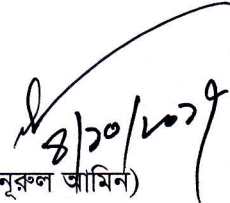 ৪/১০/২০১৭
নূরুল আমিন)